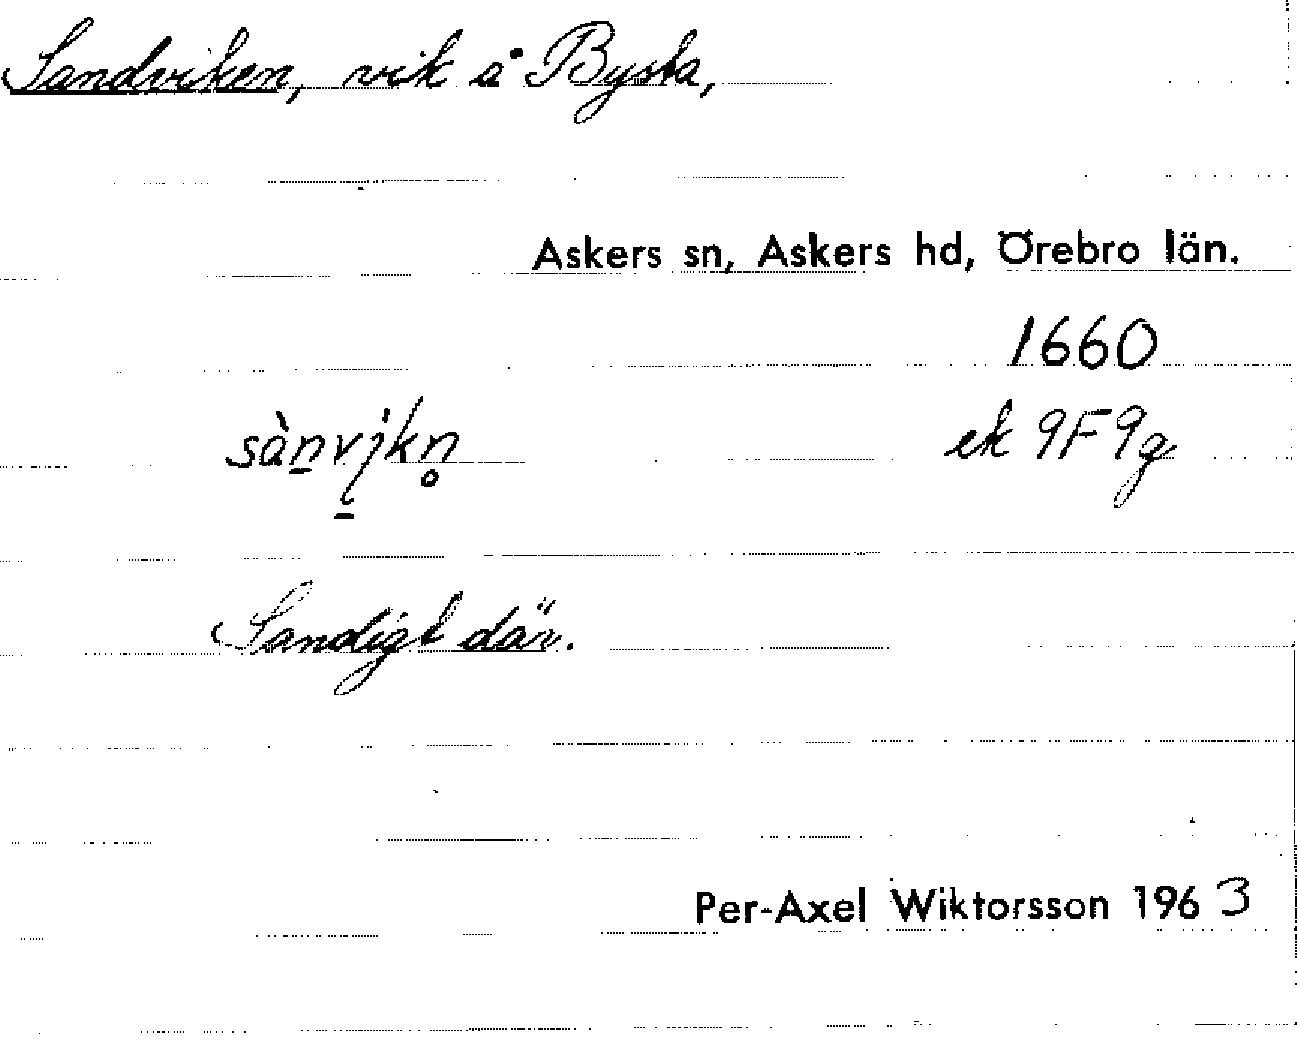 Sandviken, vik å Bysta,
Askers sn, Askers hd, Örebro län.
1660
sàn̲vi̲kn̥
ek 9F9g
Sandigt där.
Per-Axel Wiktorsson 1963